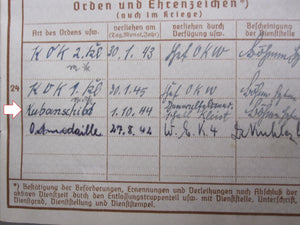 Orden und Ehrenzeichen*)
(auch im Kriege)
Art des Ordens usw.
verliehen am
(Tag, Monat, Jahr)
verliehen durch
Verfügung von
Bescheinigung
der
Dienststelle
KVK 2. Kl. 30.1.43 Chef OKW
m. Schw.
24
KVK 1. Kl. 30.1.45 Chef OKW
m. Schw.
Kubanschild 1.10.44 Generalfeldmar-
schall Kleist
Ostmedaille 27.8.42 W.E.K4
*) Bestätigung der Beförderungen, Ernennungen und Verleihungen nach Abschluß der
aktiven Dienstzeit usw. mit Dienststelle, Unterschrift,
Dienstgrad, Dienststellung und Dienststempel.